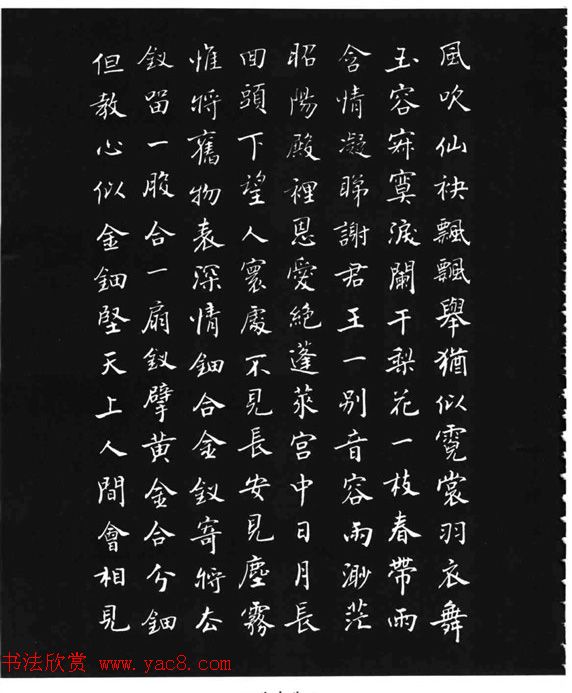 風吹仙袂飄飄舉猶似霓裳羽衣舞
玉容寂寞淚闌干梨花一枝春帶雨
含情凝睇謝君王一別音容兩渺茫
昭陽殿裡恩愛絕蓬萊宮中日月長
回頭下望人寰處不見長安見塵霧
惟將舊物表深情鈿合金釵寄將去
釵留一股合一扇釵擘黃金合分鈿
但教心似金鈿堅天上人間會相見
书法欣赏 www.yac8.com